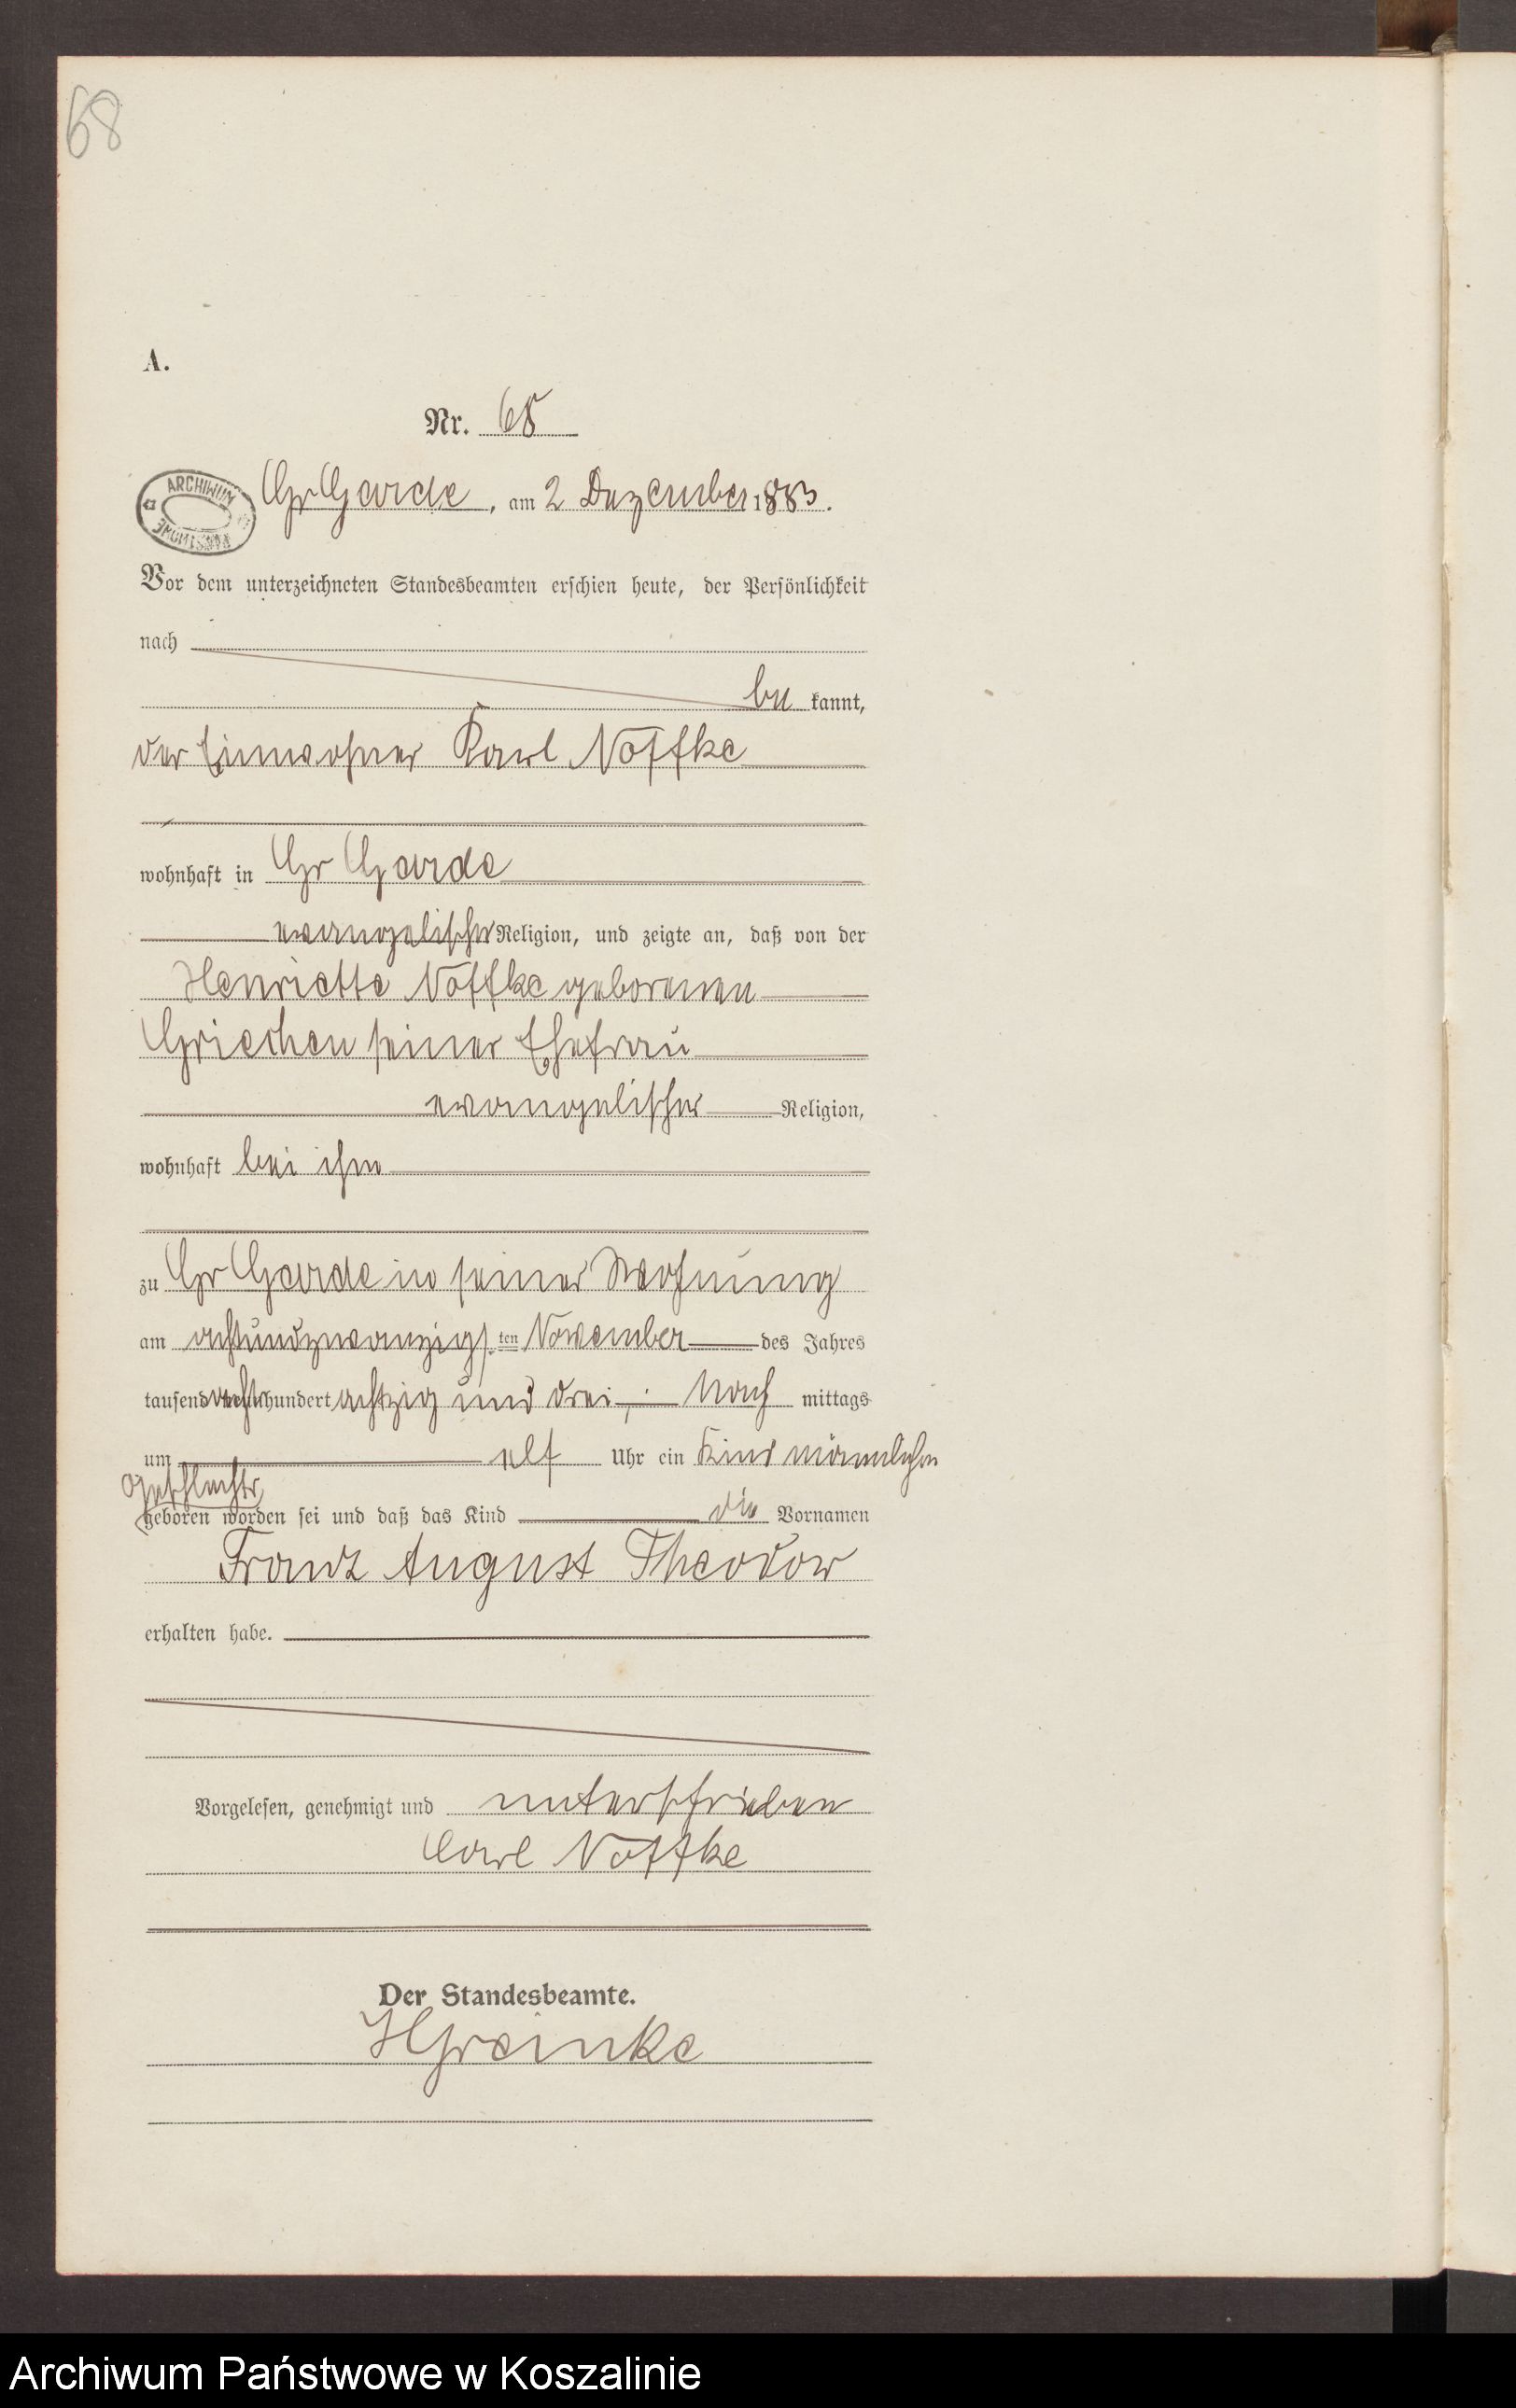 68
A.
Nr. 68
ARCHIWUM PAŃSTWOWE
Gr Garde, am 2 Dezember 1883.
Vor dem unterzeichneten Standesbeamten erschien heute, der Persönlichkeit
nach
be kannt,
der Einwohner Karl Noffke
wohnhaft in Gr Garde
evangelischer Religion, und zeigte an, daß von der
Henriette Noffke geborenen
Griechen seiner Ehefrau
evangelischer Religion,
wohnhaft bei ihm
zu Gr Garde in seiner Wohnung
am achtundzwanzigs ten November des Jahres
tausend acht hundert achtzig und drei, Nach mittags
um elf Uhr ein Kind männlichen
Geschlechts
geboren worden sei und daß das Kind die Vornamen
Franz August Theodor
erhalten habe.
Vorgelesen, genehmigt und unterschrieben
Carl Noffke
Der Standesbeamte.
HGreinke
Archiwum Państwowe w Koszalinie